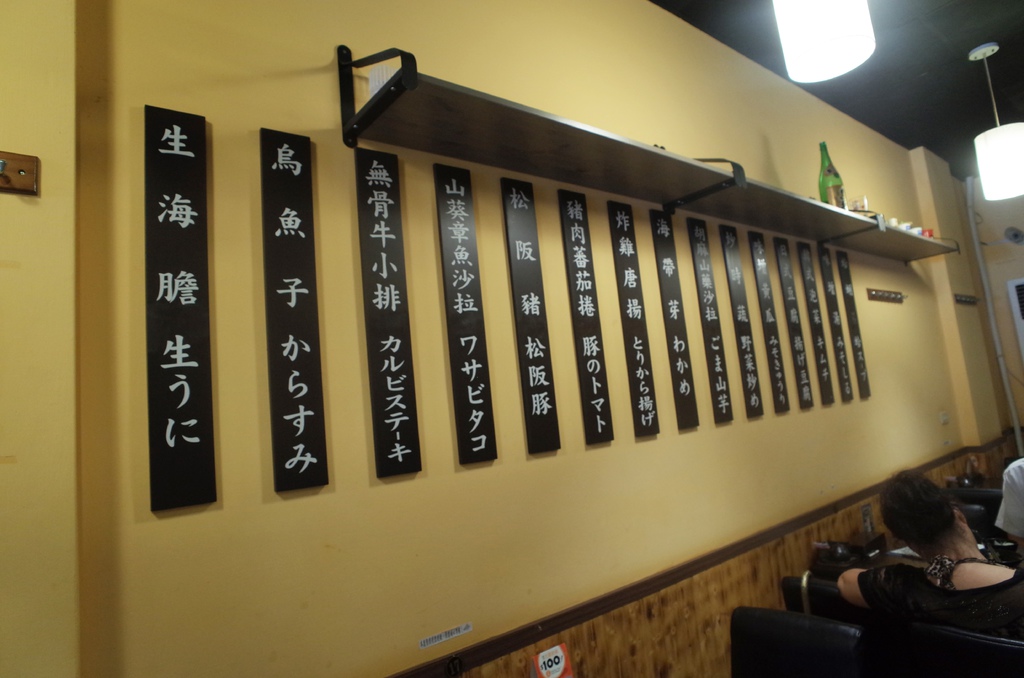 生海膽 生うに
烏魚子 からすみ
無骨牛小排 カルビステーキ
山葵章魚沙拉 ワサビタコ
松阪豬 松阪豚
豬肉蕃茄捲 豚のトマト
炸雞唐揚 とりから揚げ
海帶芽 わかめ
胡麻山藥沙拉 ごま山芋
炒時蔬 野菜炒め
黃瓜 みそきゅうり
豆腐 揚げ豆腐
泡菜 キムチ
味噌湯 みそしる
$100